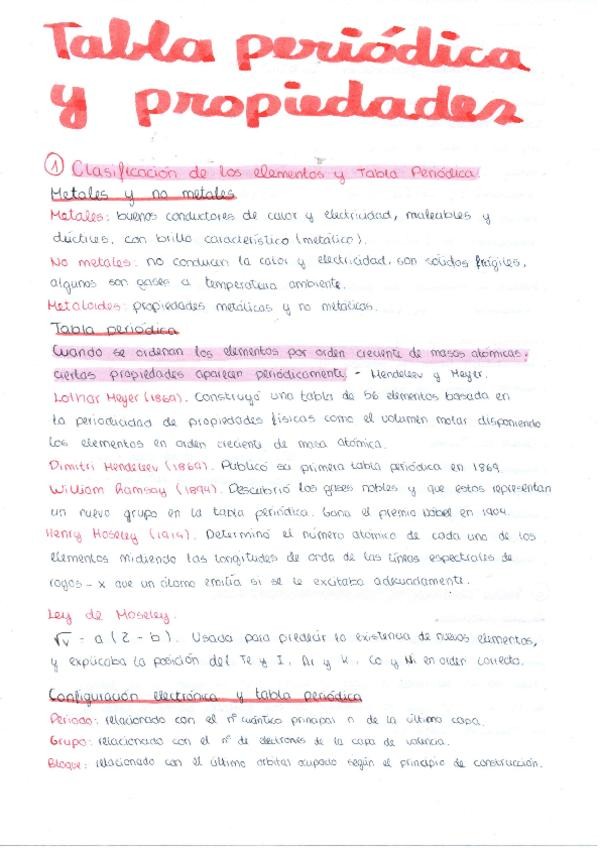 Tabla periódica
y propiedades
① Clasificación de los elementos y Tabla Periódica
Metales y no metales
Metales: buenos conductores de calor y electricidad, maleables y
dúctiles, con brillo característico (metálico).
No metales: no conducen la calor y electricidad, son sólidos frágiles,
algunos son gases a temperatura ambiente.
Metaloides: propiedades metálicas y no metálicas.
Tabla periódica
Cuando se ordenan los elementos por orden creciente de masas atómicas,
ciertas propiedades aparecen periódicamente. - Mendeleev y Meyer.
Lothar Meyer (1869). Construyó una tabla de 56 elementos basada en
la periodicidad de propiedades físicas como el volumen molar disponiendo
los elementos en orden creciente de masa atómica.
Dimitri Mendeleev (1869). Publicó su primera tabla periódica en 1869.
William Ramsay (1894). Descubrió los gases nobles y que estos representan
un nuevo grupo en la tabla periódica. Gana el premio Nobel en 1904.
Henry Moseley (1914). Determinó el número atómico de cada uno de los
elementos midiendo las longitudes de onda de las líneas espectrales de
rayos-x que un átomo emitía si se le excitaba adecuadamente.
Ley de Moseley.
√v = a (Z - b). Usada para predecir la existencia de nuevos elementos,
y explicaba la posición del Te y I, Ar y K, Co y Ni en orden correcto.
Configuración electrónica y tabla periódica
Periodo: relacionado con el nº cuántico principal n de la última capa.
Grupo: relacionado con el nº de electrones de la capa de valencia.
Bloque: relacionado con el último orbital ocupado según el principio de construcción.